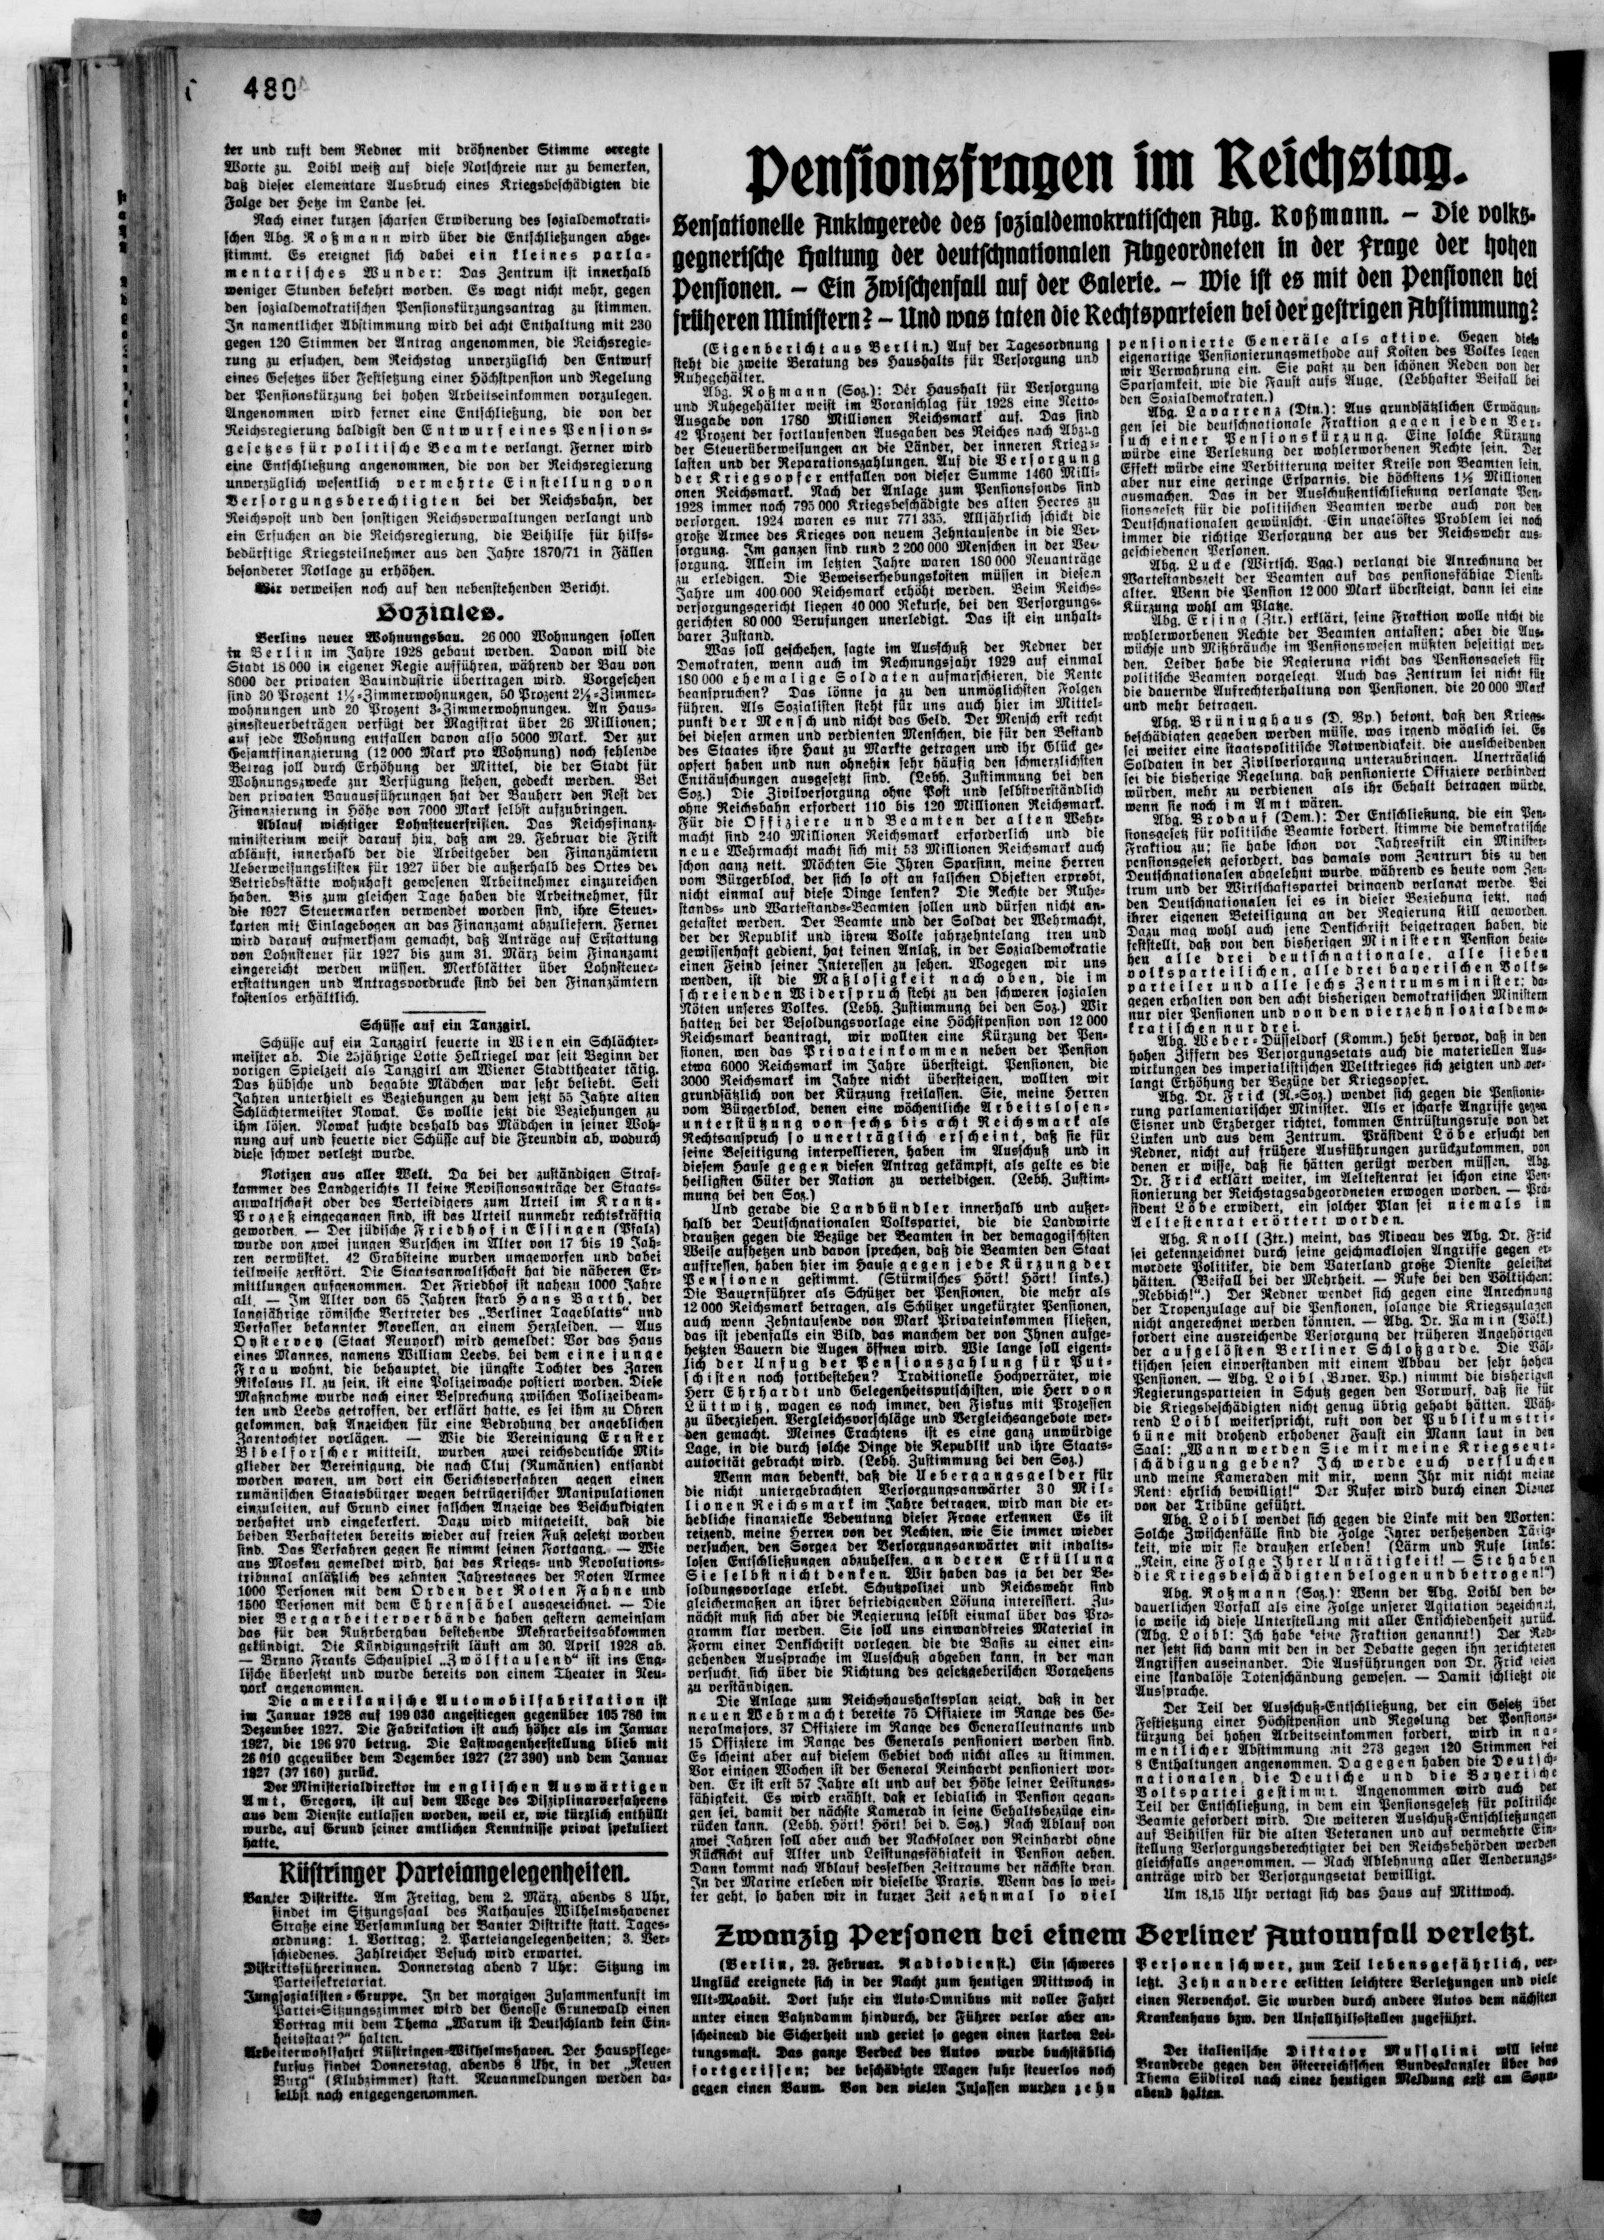 480
ter und ruft dem Redner mit dröhnender Stimme erregte
Worte zu. Loibl weiß auf diese Notschreie nur zu bemerken,
daß dieser elementare Ausbruch eines Kriegsbeschädigten die
Folge der Hetze im Lande sei.
Nach einer kurzen scharfen Erwiderung des sozialdemokrati-
schen Abg. Roßmann wird über die Entschließungen abge-
stimmt. Es ereignet sich dabei ein kleines parla-
mentarisches Wunder: Das Zentrum ist innerhalb
weniger Stunden bekehrt worden. Es wagt nicht mehr, gegen
den sozialdemokratischen Pensionskürzungsantrag zu stimmen.
In namentlicher Abstimmung wird bei acht Enthaltung mit 230
gegen 120 Stimmen der Antrag angenommen, die Reichsregie-
rung zu ersuchen, dem Reichstag unverzüglich den Entwurf
eines Gesetzes über Festsetzung einer Höchstpension und Regelung
der Pensionskürzung bei hohen Arbeitseinkommen vorzulegen.
Angenommen wird ferner eine Entschließung, die von der
Reichsregierung baldigst den Entwurf eines Pensions-
gesetzes für politische Beamte verlangt. Ferner wird
eine Entschließung angenommen, die von der Reichsregierung
unverzüglich wesentlich vermehrte Einstellung von
Versorgungsberechtigten bei der Reichsbahn, der
Reichspost und den sonstigen Reichsverwaltungen verlangt und
ein Ersuchen an die Reichsregierung, die Beihilfe für hilfs-
bedürftige Kriegsteilnehmer aus den Jahre 1870/71 in Fällen
besonderer Notlage zu erhöhen.
Wir verweisen noch auf den nebenstehenden Bericht.
Soziales.
Berlins neuer Wohnungsbau. 26 000 Wohnungen sollen
in Berlin im Jahre 1928 gebaut werden. Davon will die
Stadt 18 000 in eigener Regie aufführen, während der Bau von
8000 der privaten Bauindustrie übertragen wird. Vorgesehen
sind 30 Prozent 1½-Zimmerwohnungen, 50 Prozent 2½-Zimmer-
wohnungen und 20 Prozent 3-Zimmerwohnungen. An Haus-
zinssteuerbeträgen verfügt der Magistrat über 26 Millionen;
auf jede Wohnung entfallen davon also 5000 Mark. Der zur
Gesamtfinanzierung (12 000 Mark pro Wohnung) noch fehlende
Betrag soll durch Erhöhung der Mittel, die der Stadt für
Wohnungszwecke zur Verfügung stehen, gedeckt werden. Bei
den privaten Bauausführungen hat der Bauherr den Rest der
Finanzierung in Höhe von 7000 Mark selbst aufzubringen.
Ablauf wichtiger Lohnsteuerfristen. Das Reichsfinanz-
ministerium weist darauf hin, daß am 29. Februar die Frist
abläuft, innerhalb der die Arbeitgeber den Finanzämtern
Ueberweisungslisten für 1927 über die außerhalb des Ortes der
Betriebsstätte wohnhaft gewesenen Arbeitnehmer einzureichen
haben. Bis zum gleichen Tage haben die Arbeitnehmer, für
die 1927 Steuermarken verwendet worden sind, ihre Steuer-
karten mit Einlagebogen an das Finanzamt abzuliefern. Ferner
wird darauf aufmerksam gemacht, daß Anträge auf Erstattung
von Lohnsteuer für 1927 bis zum 31. März beim Finanzamt
eingereicht werden müssen. Merkblätter über Lohnsteuer-
erstattungen und Antragsvordrucke sind bei den Finanzämtern
kostenlos erhältlich.
Schüsse auf ein Tanzgirl.
Schüsse auf ein Tanzgirl feuerte in Wien ein Schlächter-
meister ab. Die 25jährige Lotte Hellriegel war seit Beginn der
vorigen Spielzeit als Tanzgirl am Wiener Stadttheater tätig.
Das hübsche und begabte Mädchen war sehr beliebt. Seit
Jahren unterhielt es Beziehungen zu dem jetzt 55 Jahre alten
Schlächtermeister Nowak. Es wollte jetzt die Beziehungen zu
ihm lösen. Nowak suchte deshalb das Mädchen in seiner Woh-
nung auf und feuerte vier Schüsse auf die Freundin ab, wodurch
diese schwer verletzt wurde.
Notizen aus aller Welt. Da bei der zuständigen Straf-
kammer des Landgerichts II keine Revisionsanträge der Staats-
anwaltschaft oder des Verteidigers zum Urteil im Krantz-
Prozeß eingegangen sind, ist das Urteil nunmehr rechtskräftig
geworden. — Der jüdische Friedhof in Essingen (Pfalz)
wurde von zwei jungen Burschen im Alter von 17 bis 19 Jah-
ren verwüstet. 42 Grabsteine wurden umgeworfen und dabei
teilweise zerstört. Die Staatsanwaltschaft hat die näheren Er-
mittlungen aufgenommen. Der Friedhof ist nahezu 1000 Jahre
alt. — Im Alter von 65 Jahren starb Hans Barth, der
langjährige römische Vertreter des „Berliner Tageblatts“ und
Verfasser bekannter Novellen, an einem Herzleiden. — Aus
Oysterbey (Staat Neuyork) wird gemeldet: Vor das Haus
eines Mannes, namens William Leeds, bei dem eine junge
Frau wohnt, die behauptet, die jüngste Tochter des Zaren
Nikolaus II. zu sein, ist eine Polizeiwache postiert worden. Diese
Maßnahme wurde nach einer Besprechung zwischen Polizeibeam-
ten und Leeds getroffen, der erklärt hatte, es sei ihm zu Ohren
gekommen, daß Anzeichen für eine Bedrohung der angeblichen
Zarentochter vorlägen. — Wie die Vereinigung Ernster
Bibelforscher mitteilt, wurden zwei reichsdeutsche Mit-
glieder der Vereinigung, die nach Cluj (Rumänien) entsandt
worden waren, um dort ein Gerichtsverfahren gegen einen
rumänischen Staatsbürger wegen betrügerischer Manipulationen
einzuleiten, auf Grund einer falschen Anzeige des Beschuldigten
verhaftet und eingekerkert. Dazu wird mitgeteilt, daß die
beiden Verhafteten bereits wieder auf freien Fuß gesetzt worden
sind. Das Verfahren gegen sie nimmt seinen Fortgang. — Wie
aus Moskau gemeldet wird, hat das Kriegs- und Revolutions-
tribunal anläßlich des zehnten Jahrestages der Roten Armee
1000 Personen mit dem Orden der Roten Fahne und
1500 Personen mit dem Ehrensäbel ausgezeichnet. — Die
vier Bergarbeiterverbände haben gestern gemeinsam
das für den Ruhrbergbau bestehende Mehrarbeitsabkommen
gekündigt. Die Kündigungsfrist läuft am 30. April 1928 ab.
— Bruno Franks Schauspiel „Zwölftausend“ ist ins Eng-
lische übersetzt und wurde bereits von einem Theater in Neu-
york angenommen.
Die amerikanische Automobilfabrikation ist
im Januar 1928 auf 199 030 angestiegen gegenüber 105 780 im
Dezember 1927. Die Fabrikation ist auch höher als im Januar
1927, die 196 970 betrug. Die Lastwagenherstellung blieb mit
26 010 gegenüber dem Dezember 1927 (27 390) und dem Januar
1927 (37 160) zurück.
Der Ministerialdirektor im englischen Auswärtigen
Amt, Gregory, ist auf dem Wege des Disziplinarverfahrens
aus dem Dienste entlassen worden, weil er, wie kürzlich enthüllt
wurde, auf Grund seiner amtlichen Kenntnisse privat spekuliert
hatte.
Rüstringer Parteiangelegenheiten.
Banter Distrikte. Am Freitag, dem 2. März, abends 8 Uhr,
findet im Sitzungssaal des Rathauses Wilhelmshavener
Straße eine Versammlung der Banter Distrikte statt. Tages-
ordnung: 1. Vortrag; 2. Parteiangelegenheiten; 3. Ver-
schiedenes. Zahlreicher Besuch wird erwartet.
Distriktsführerinnen. Donnerstag abend 7 Uhr: Sitzung im
Parteisekretariat.
Jungsozialisten-Gruppe. In der morgigen Zusammenkunft im
Partei-Sitzungszimmer wird der Genosse Grunewald einen
Vortrag mit dem Thema „Warum ist Deutschland kein Ein-
heitsstaat?“ halten.
Arbeiterwohlfahrt Rüstringen-Wilhelmshaven. Der Hauspflege-
kursus findet Donnerstag, abends 8 Uhr, in der „Neuen
Burg“ (Klubzimmer) statt. Neuanmeldungen werden da-
selbst noch entgegengenommen.
Pensionsfragen im Reichstag.
Sensationelle Anklagerede des sozialdemokratischen Abg. Roßmann. — Die volks-
gegnerische Haltung der deutschnationalen Abgeordneten in der Frage der hohen
Pensionen. — Ein Zwischenfall auf der Galerie. — Wie ist es mit den Pensionen bei
früheren Ministern? — Und was taten die Rechtsparteien bei der gestrigen Abstimmung?
(Eigenbericht aus Berlin.) Auf der Tagesordnung
steht die zweite Beratung des Haushalts für Versorgung und
Ruhegehälter.
Abg. Roßmann (Soz.): Der Haushalt für Versorgung
und Ruhegehälter weist im Voranschlag für 1928 eine Netto-
Ausgabe von 1780 Millionen Reichsmark auf. Das sind
42 Prozent der fortlaufenden Ausgaben des Reiches nach Abzug
der Steuerüberweisungen an die Länder, der inneren Kriegs-
lasten und der Reparationszahlungen. Auf die Versorgung
der Kriegsopfer entfallen von dieser Summe 1460 Milli-
onen Reichsmark. Nach der Anlage zum Pensionsfonds sind
1928 immer noch 795 000 Kriegsbeschädigte des alten Heeres zu
versorgen. 1924 waren es nur 771 335. Alljährlich schickt die
große Armee des Krieges von neuem Zehntausende in die Ver-
sorgung. Im ganzen sind rund 2 200 000 Menschen in der Ver-
sorgung. Allein im letzten Jahre waren 180 000 Neuanträge
zu erledigen. Die Beweiserhebungskosten müssen in diesem
Jahre um 400 000 Reichsmark erhöht werden. Beim Reichs-
versorgungsgericht liegen 40 000 Rekurse, bei den Versorgungs-
gerichten 80 000 Berufungen unerledigt. Das ist ein unhalt-
barer Zustand.
Was soll geschehen, sagte im Ausschuß der Redner der
Demokraten, wenn auch im Rechnungsjahr 1929 auf einmal
180 000 ehemalige Soldaten aufmarschieren, die Rente
beanspruchen? Das könne ja zu den unmöglichsten Folgen
führen. Als Sozialisten steht für uns auch hier im Mittel-
punkt der Mensch und nicht das Geld. Der Mensch erst recht
bei diesen armen und verdienten Menschen, die für den Bestand
des Staates ihre Haut zu Markte getragen und ihr Glück ge-
opfert haben und nun ohnehin sehr häufig den schmerzlichsten
Enttäuschungen ausgesetzt sind. (Lebh. Zustimmung bei den
Soz.) Die Zivilversorgung ohne Post und selbstverständlich
ohne Reichsbahn erfordert 110 bis 120 Millionen Reichsmark.
Für die Offiziere und Beamten der alten Wehr-
macht sind 240 Millionen Reichsmark erforderlich und die
neue Wehrmacht macht sich mit 53 Millionen Reichsmark auch
schon ganz nett. Möchten Sie Ihren Sparsinn, meine Herren
vom Bürgerblock, der sich so oft an falschen Objekten erprobt,
nicht einmal auf diese Dinge lenken? Die Rechte der Ruhe-
stands- und Wartestands-Beamten sollen und dürfen nicht an-
getastet werden. Der Beamte und der Soldat der Wehrmacht,
der der Republik und ihrem Volke jahrzehntelang treu und
gewissenhaft gedient, hat keinen Anlaß, in der Sozialdemokratie
einen Feind seiner Interessen zu sehen. Wogegen wir uns
wenden, ist die Maßlosigkeit nach oben, die im
schreienden Widerspruch steht zu den schweren sozialen
Nöten unseres Volkes. (Lebh. Zustimmung bei den Soz.) Wir
hatten bei der Besoldungsvorlage eine Höchstpension von 12 000
Reichsmark beantragt, wir wollten eine Kürzung der Pen-
sionen, wen das Privateinkommen neben der Pension
etwa 6000 Reichsmark im Jahre übersteigt. Pensionen, die
3000 Reichsmark im Jahre nicht übersteigen, wollten wir
grundsätzlich von der Kürzung freilassen. Sie, meine Herren
vom Bürgerblock, denen eine wöchentliche Arbeitslosen-
unterstützung von sechs bis acht Reichsmark als
Rechtsanspruch so unerträglich erscheint, daß sie für
seine Beseitigung interpellieren, haben im Ausschuß und in
diesem Hause gegen diesen Antrag gekämpft, als gelte es die
heiligsten Güter der Nation zu verteidigen. (Lebh. Zustim-
mung bei den Soz.)
Und gerade die Landbündler innerhalb und außer-
halb der Deutschnationalen Volkspartei, die die Landwirte
draußen gegen die Bezüge der Beamten in der demagogischsten
Weise aufhetzen und davon sprechen, daß die Beamten den Staat
auffressen, haben hier im Hause gegen jede Kürzung der
Pensionen gestimmt. (Stürmisches Hört! Hört! links.)
Die Bauernführer als Schützer der Pensionen, die mehr als
12 000 Reichsmark betragen, als Schützer ungekürzter Pensionen,
auch wenn Zehntausende von Mark Privateinkommen fließen,
das ist jedenfalls ein Bild, das manchem der von Ihnen aufge-
hetzten Bauern die Augen öffnen wird. Wie lange soll eigent-
lich der Unfug der Pensionszahlung für Put-
schisten noch fortbestehen? Traditionelle Hochverräter, wie
Herr Ehrhardt und Gelegenheitsputschisten, wie Herr von
Lüttwitz, wagen es noch immer, den Fiskus mit Prozessen
zu überziehen. Vergleichsvorschläge und Vergleichsangebote wer-
den gemacht. Meines Erachtens ist es eine ganz unwürdige
Lage, in die durch solche Dinge die Republik und ihre Staats-
autorität gebracht wird. (Lebh. Zustimmung bei den Soz.)
Wenn man bedenkt, daß die Uebergangsgelder für
die nicht untergebrachten Versorgungsanwärter 30 Mil-
lionen Reichsmark im Jahre betragen, wird man die er-
hebliche finanzielle Bedeutung dieser Frage erkennen. Es ist
reizend, meine Herren von der Rechten, wie Sie immer wieder
versuchen, den Sorgen der Versorgungsanwärter mit inhalts-
losen Entschließungen abzuhelfen, an deren Erfüllung
Sie selbst nicht denken. Wir haben das ja bei der Be-
soldungsvorlage erlebt. Schutzpolizei und Reichswehr sind
gleichermaßen an ihrer befriedigenden Lösung interessiert. Zu-
nächst muß sich aber die Regierung selbst einmal über das Pro-
gramm klar werden. Sie soll uns einwandfreies Material in
Form einer Denkschrift vorlegen, die die Basis zu einer ein-
gehenden Aussprache im Ausschuß abgeben kann, in der man
versucht, sich über die Richtung des gesetzgeberischen Vorgehens
zu verständigen.
Die Anlage zum Reichshaushaltsplan zeigt, daß in der
neuen Wehrmacht bereits 75 Offiziere im Range des Ge-
neralmajors, 37 Offiziere im Range des Generalleutnants und
15 Offiziere im Range des Generals pensioniert worden sind.
Es scheint aber auf diesem Gebiet doch nicht alles zu stimmen.
Vor einigen Wochen ist der General Reinhardt pensioniert wor-
den. Er ist erst 57 Jahre alt und auf der Höhe seiner Leistungs-
fähigkeit. Es wird erzählt, daß er lediglich in Pension gegan-
gen sei, damit der nächste Kamerad in seine Gehaltsbezüge ein-
rücken kann. (Lebh. Hört! Hört! bei d. Soz.) Nach Ablauf von
zwei Jahren soll aber auch der Nachfolger von Reinhardt ohne
Rücksicht auf Alter und Leistungsfähigkeit in Pension gehen.
Dann kommt nach Ablauf desselben Zeitraums der nächste dran.
In der Marine erleben wir dieselbe Praxis. Wenn das so wei-
ter geht, so haben wir in kurzer Zeit zehnmal so viel
pensionierte Generäle als aktive. Gegen diese
eigenartige Pensionierungsmethode auf Kosten des Volkes legen
wir Verwahrung ein. Sie paßt zu den schönen Reden von der
Sparsamkeit, wie die Faust aufs Auge. (Lebhafter Beifall bei
den Sozialdemokraten.)
Abg. Lavarrenz (Dtn.): Aus grundsätzlichen Erwägun-
gen sei die deutschnationale Fraktion gegen jeden Ver-
such einer Pensionskürzung. Eine solche Kürzung
würde eine Verletzung der wohlerworbenen Rechte sein. Der
Effekt würde eine Verbitterung weiter Kreise von Beamten sein,
aber nur eine geringe Ersparnis, die höchstens 1½ Millionen
ausmachen. Das in der Ausschußentschließung verlangte Pen-
sionsgesetz für die politischen Beamten werde auch von den
Deutschnationalen gewünscht. Ein ungelöstes Problem sei noch
immer die richtige Versorgung der aus der Reichswehr aus-
geschiedenen Personen.
Abg. Lucke (Wirtsch. Vgg.) verlangt die Anrechnung der
Wartestandszeit der Beamten auf das pensionsfähige Dienst-
alter. Wenn die Pension 12 000 Mark übersteigt, dann sei eine
Kürzung wohl am Platze.
Abg. Ersing (Ztr.) erklärt, seine Fraktion wolle nicht die
wohlerworbenen Rechte der Beamten antasten; aber die Aus-
wüchse und Mißbräuche im Pensionswesen müßten beseitigt wer-
den. Leider habe die Regierung nicht das Pensionsgesetz für
politische Beamten vorgelegt. Auch das Zentrum sei nicht für
die dauernde Aufrechterhaltung von Pensionen, die 20 000 Mark
und mehr betragen.
Abg. Brüninghaus (D. Vp.) betont, daß den Kriegs-
beschädigten gegeben werden müsse, was irgend möglich sei. Es
sei weiter eine staatspolitische Notwendigkeit, die ausscheidenden
Soldaten in der Zivilversorgung unterzubringen. Unerträglich
sei die bisherige Regelung, daß pensionierte Offiziere verhindert
würden, mehr zu verdienen als ihr Gehalt betragen würde,
wenn sie noch im Amt wären.
Abg. Brodauf (Dem.): Der Entschließung, die ein Pen-
sionsgesetz für politische Beamte fordert, stimme die demokratische
Fraktion zu; sie habe schon vor Jahresfrist ein Minister-
pensionsgesetz gefordert, das damals vom Zentrum bis zu den
Deutschnationalen abgelehnt wurde, während es heute vom Zen-
trum und der Wirtschaftspartei dringend verlangt werde. Bei
den Deutschnationalen sei es in dieser Beziehung jetzt, nach
ihrer eigenen Beteiligung an der Regierung still geworden.
Dazu mag wohl auch jene Denkschrift beigetragen haben, die
feststellt, daß von den bisherigen Ministern Pension bezie-
hen alle drei deutschnationale, alle sieben
volksparteilichen, alle drei bayerischen Volks-
parteiler und alle sechs Zentrumsminister; da-
gegen erhalten von den acht bisherigen demokratischen Ministern
nur vier Pensionen und von den vierzehn sozialdemo-
kratischen nur drei.
Abg. Weber-Düsseldorf (Komm.) hebt hervor, daß in den
hohen Ziffern des Versorgungsetats auch die materiellen Aus-
wirkungen des imperialistischen Weltkrieges sich zeigten und ver-
langt Erhöhung der Bezüge der Kriegsopfer.
Abg. Dr. Frick (N.-Soz.) wendet sich gegen die Pensionie-
rung parlamentarischer Minister. Als er scharfe Angriffe gegen
Eisner und Erzberger richtet, kommen Entrüstungsrufe von der
Linken und aus dem Zentrum. Präsident Löbe ersucht den
Redner, nicht auf frühere Ausführungen zurückzukommen, von
denen er wisse, daß sie hätten gerügt werden müssen. Abg.
Dr. Frick erklärt weiter, im Aeltestenrat sei schon eine Pen-
sionierung der Reichstagsabgeordneten erwogen worden. — Prä-
sident Löbe erwidert, ein solcher Plan sei niemals im
Aeltestenrat erörtert worden.
Abg. Knoll (Ztr.) meint, das Niveau des Abg. Dr. Frick
sei gekennzeichnet durch seine geschmacklosen Angriffe gegen er-
mordete Politiker, die dem Vaterland große Dienste geleistet
hätten. (Beifall bei der Mehrheit. — Rufe bei den Völkischen:
„Nebbich!“.) Der Redner wendet sich gegen eine Anrechnung
der Tropenzulage auf die Pensionen, solange die Kriegszulagen
nicht angerechnet werden könnten. — Abg. Dr. Ramin (Völk.)
fordert eine ausreichende Versorgung der früheren Angehörigen
der aufgelösten Berliner Schloßgarde. Die Völ-
kischen seien einverstanden mit einem Abbau der sehr hohen
Pensionen. — Abg. Loibl (Bayer. Vp.) nimmt die bisherigen
Regierungsparteien in Schutz gegen den Vorwurf, daß sie für
die Kriegsbeschädigten nicht genug übrig gehabt hätten. Wäh-
rend Loibl weiterspricht, ruft von der Publikumstri-
büne mit drohend erhobener Faust ein Mann laut in den
Saal: „Wann werden Sie mir meine Kriegsent-
schädigung geben? Ich werde euch verfluchen
und meine Kameraden mit mir, wenn Ihr mir nicht meine
Rente ehrlich bewilligt!“ Der Rufer wird durch einen Diener
von der Tribüne geführt.
Abg. Loibl wendet sich gegen die Linke mit den Worten:
Solche Zwischenfälle sind die Folge Ihrer verhetzenden Tätig-
keit, wie wir sie draußen erleben! (Lärm und Rufe links:
„Nein, eine Folge Ihrer Untätigkeit! — Sie haben
die Kriegsbeschädigten belogen und betrogen!“)
Abg. Roßmann (Soz.): Wenn der Abg. Loibl den be-
dauerlichen Vorfall als eine Folge unserer Agitation bezeichnet,
so weise ich diese Unterstellung mit aller Entschiedenheit zurück.
(Abg. Loibl: Ich habe keine Fraktion genannt!) Der Red-
ner setzt sich dann mit den in der Debatte gegen ihn gerichteten
Angriffen auseinander. Die Ausführungen von Dr. Frick seien
eine skandalöse Totenschändung gewesen. — Damit schließt die
Aussprache.
Der Teil der Ausschuß-Entschließung, der ein Gesetz über
Festsetzung einer Höchstpension und Regelung der Pensions-
kürzung bei hohen Arbeitseinkommen fordert, wird in na-
mentlicher Abstimmung mit 273 gegen 120 Stimmen bei
8 Enthaltungen angenommen. Dagegen haben die Deutsch-
nationalen, die Deutsche und die Bayerische
Volkspartei gestimmt. Angenommen wird auch der
Teil der Entschließung, in dem ein Pensionsgesetz für politische
Beamte gefordert wird. Die weiteren Ausschuß-Entschließungen
auf Beihilfen für die alten Veteranen und auf vermehrte Ein-
stellung Versorgungsberechtigter bei den Reichsbehörden werden
gleichfalls angenommen. — Nach Ablehnung aller Aenderungs-
anträge wird der Versorgungsetat bewilligt.
Um 18,15 Uhr vertagt sich das Haus auf Mittwoch.
Zwanzig Personen bei einem Berliner Autounfall verletzt.
(Berlin, 29. Februar. Radiodienst.) Ein schweres
Unglück ereignete sich in der Nacht zum heutigen Mittwoch in
Alt-Moabit. Dort fuhr ein Auto-Omnibus mit voller Fahrt
unter einen Bahndamm hindurch, der Führer verlor aber an-
scheinend die Sicherheit und geriet so gegen einen starken Lei-
tungsmast. Das ganze Verdeck des Autos wurde buchstäblich
fortgerissen; der beschädigte Wagen fuhr steuerlos noch
gegen einen Baum. Von den vielen Insassen wurden zehn
Personen schwer, zum Teil lebensgefährlich, ver-
letzt. Zehn andere erlitten leichtere Verletzungen und viele
einen Nervenchok. Sie wurden durch andere Autos dem nächsten
Krankenhaus bzw. den Unfallhilfsstellen zugeführt.
Der italienische Diktator Mussolini will seine
Brandrede gegen den österreichischen Bundeskanzler über das
Thema Südtirol nach einer heutigen Meldung erst am Sonn-
abend halten.